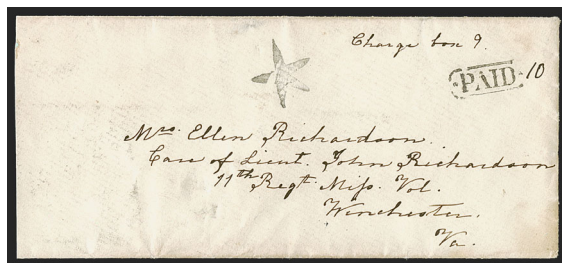 Charge box 9.
PAID 10
Mrs. Ellen Richardson.
Care of Lieut. John Richardson
11th Regt. Miss. Vol.
Winchester.
Va.